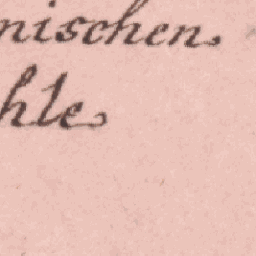 nischen.
hle.